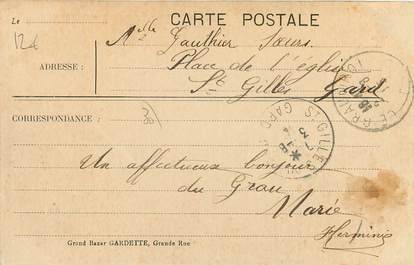 Le
CARTE POSTALE
12€
Melle Gauthier Sœurs.
ADRESSE : Place de l'église
St Gilles Gard
CORRESPONDANCE :
ST GILLES
GARD
Un affectueux bonjour
du Grau
Marie
Herminie
Grand Bazar GARDETTE, Grande Rue